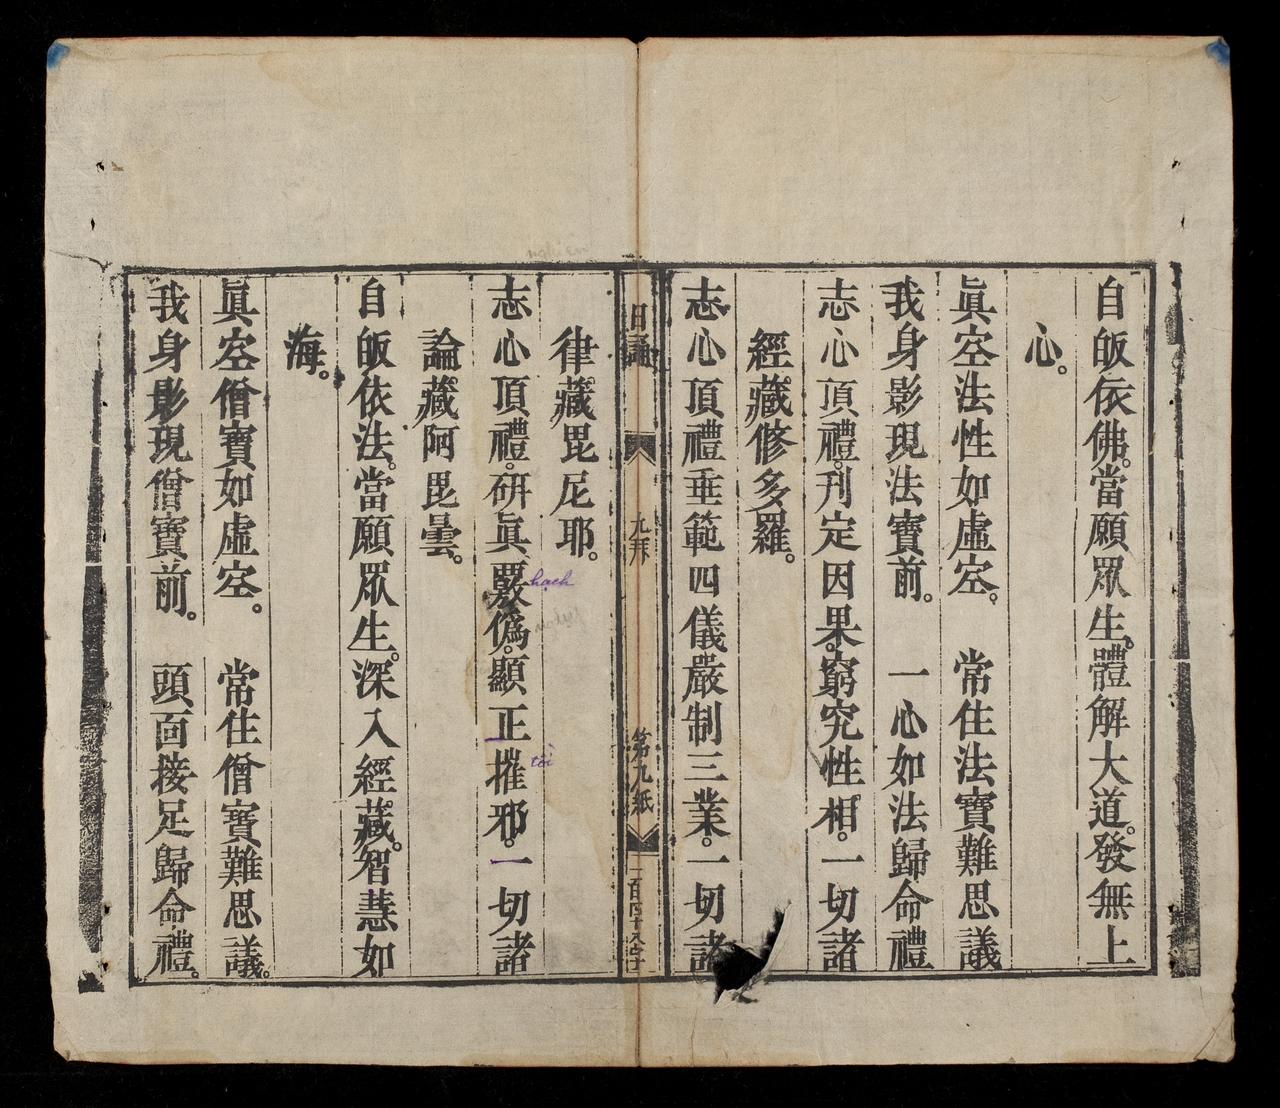 自皈依佛。當願眾生。體解大道。發無上
心。
眞空法性如虛空。　常住法寶難思議
我身影現法寶前。　一心如法歸命禮
志心頂禮。刊定因果。窮究性相。一切諸
經藏修多羅。
志心頂禮垂範四儀嚴制三業。一切諸
日誦　九拜　第九紙　一百四十八字
律藏毘尼耶。
志心頂禮。硏眞覈僞。顯正摧邪。一切諸
hạch
tồi
論藏阿毘曇。
自皈依法。當願眾生。深入經藏。智慧如
海。
眞空僧寶如虛空。　常住僧寶難思議。
我身影現僧寶前。　頭面接足歸命禮。